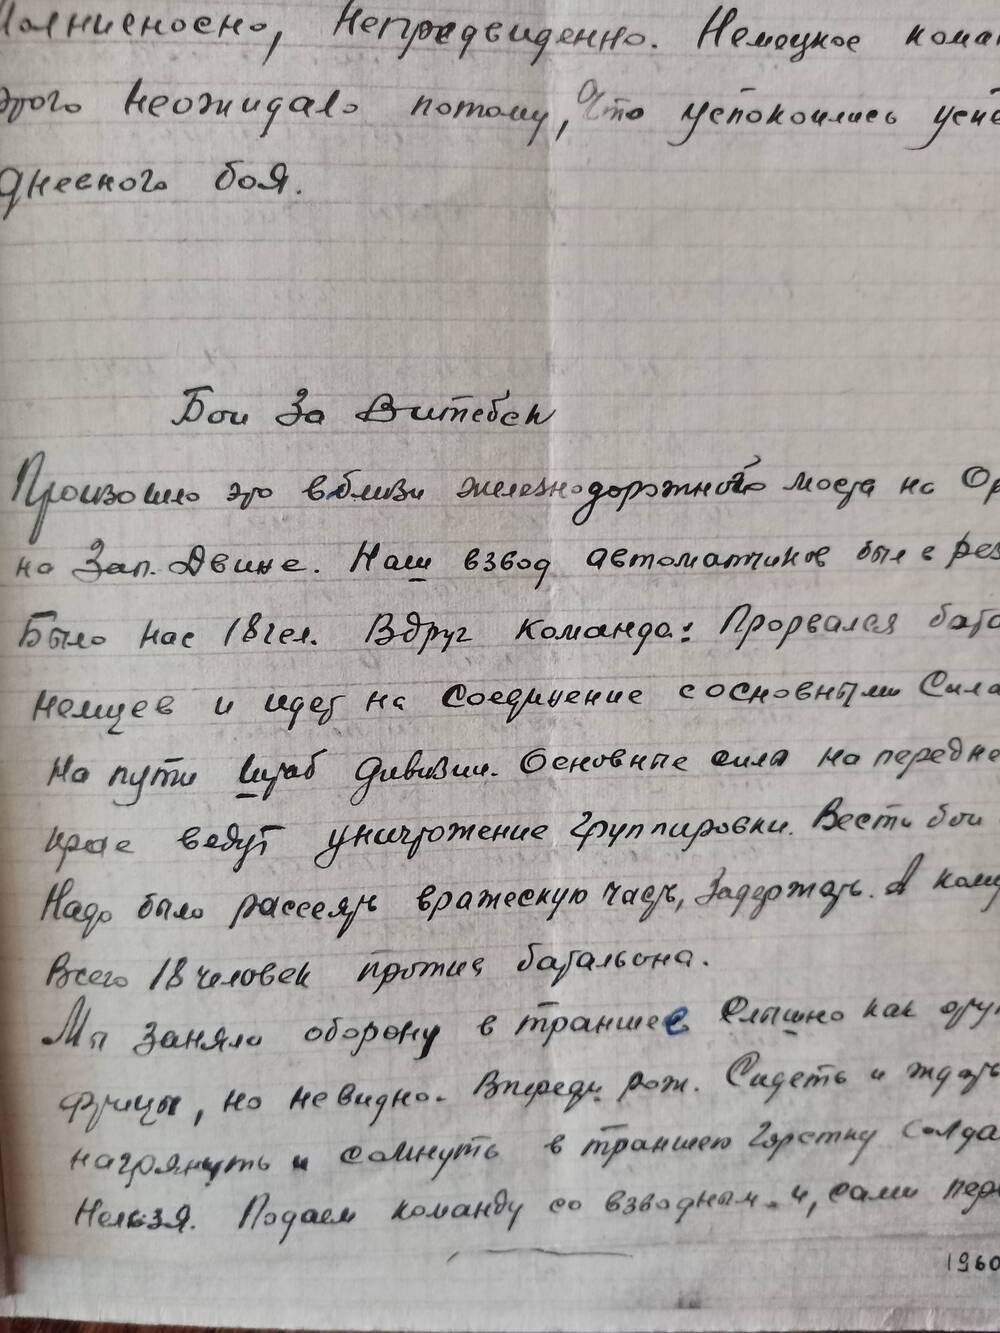 Молниеносно, Непредвиденно. Немецкое кома
этого неожидало потому, Что успокоились
дневного боя.
Бои За Витебск
Произошло это вблизи железнодорожного моста на Ор
на Зап. Двине. Наш взвод автоматчиков был в рез
Было нас 18 чел. Вдруг команда: Прорвался бата
немцев и идет на Соединение с основными Сила
На пути Штаб дивизии. Основные сила на передне
крае ведут уничтожение Группировки. Вести бои
Надо было рассеять вражескую часть, Задержать. А кому
Всего 18 человек против батальона.
Мы заняли оборону в траншее Слышно как
фрицы, но не видно. Впереди рож. Сидеть и ждать
нагрянуть и сомнуть в траншею Горстку Солда
Нельзя. Подаем команду со взводным и, сами пер
1960